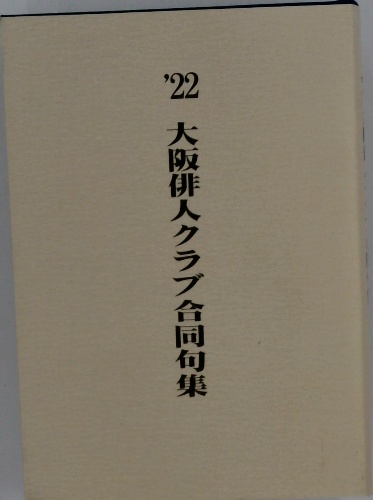 '22
大阪俳人クラブ合同句集